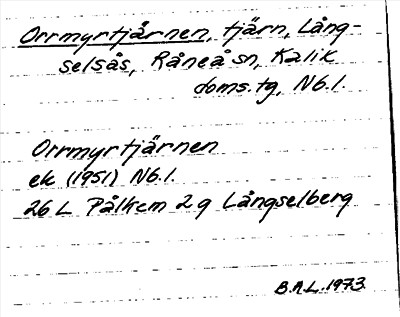 Orrmyrtjärnen, tjärn, Lång-
selsås, Råneå sn, Kalix
doms.tg, Nb.l.
Orrmyrtjärnen
ek (1951) Nb.l.
26 L Pålkem 2 g Långselberg
B.A.L. 1973